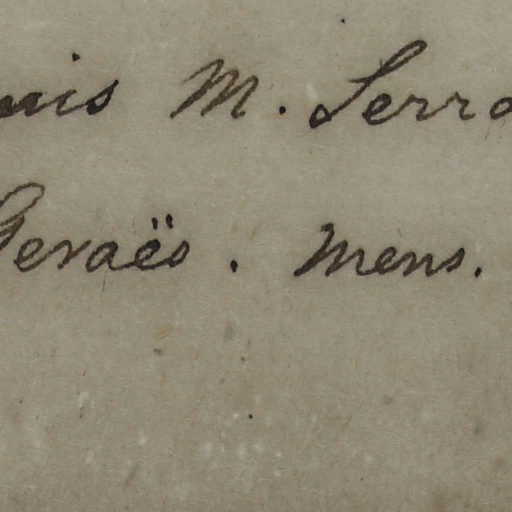 uis M. Serra
Geraës. Mens.